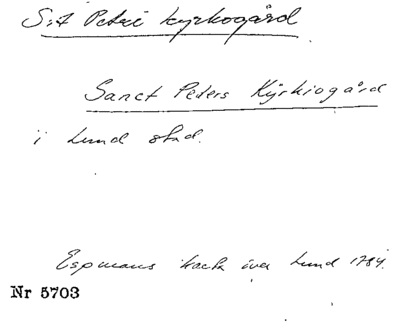 S:t Petri kyrkogård
Sanct Peders Kÿrkiogård
i Lund stad.
Espmans karta över Lund 1784.
Nr 5703